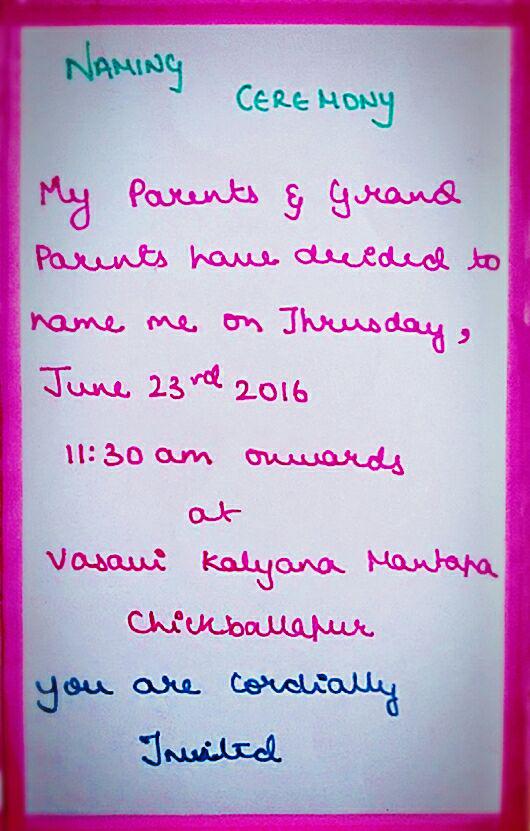 NAMING
CEREMONY
My Parents & Grand
Parents have decided to
name me on Thrusday,
June 23rd 2016
11:30 am onwards
at
Vasavi Kalyana Mantapa
Chickballapur
you are cordially
Invited